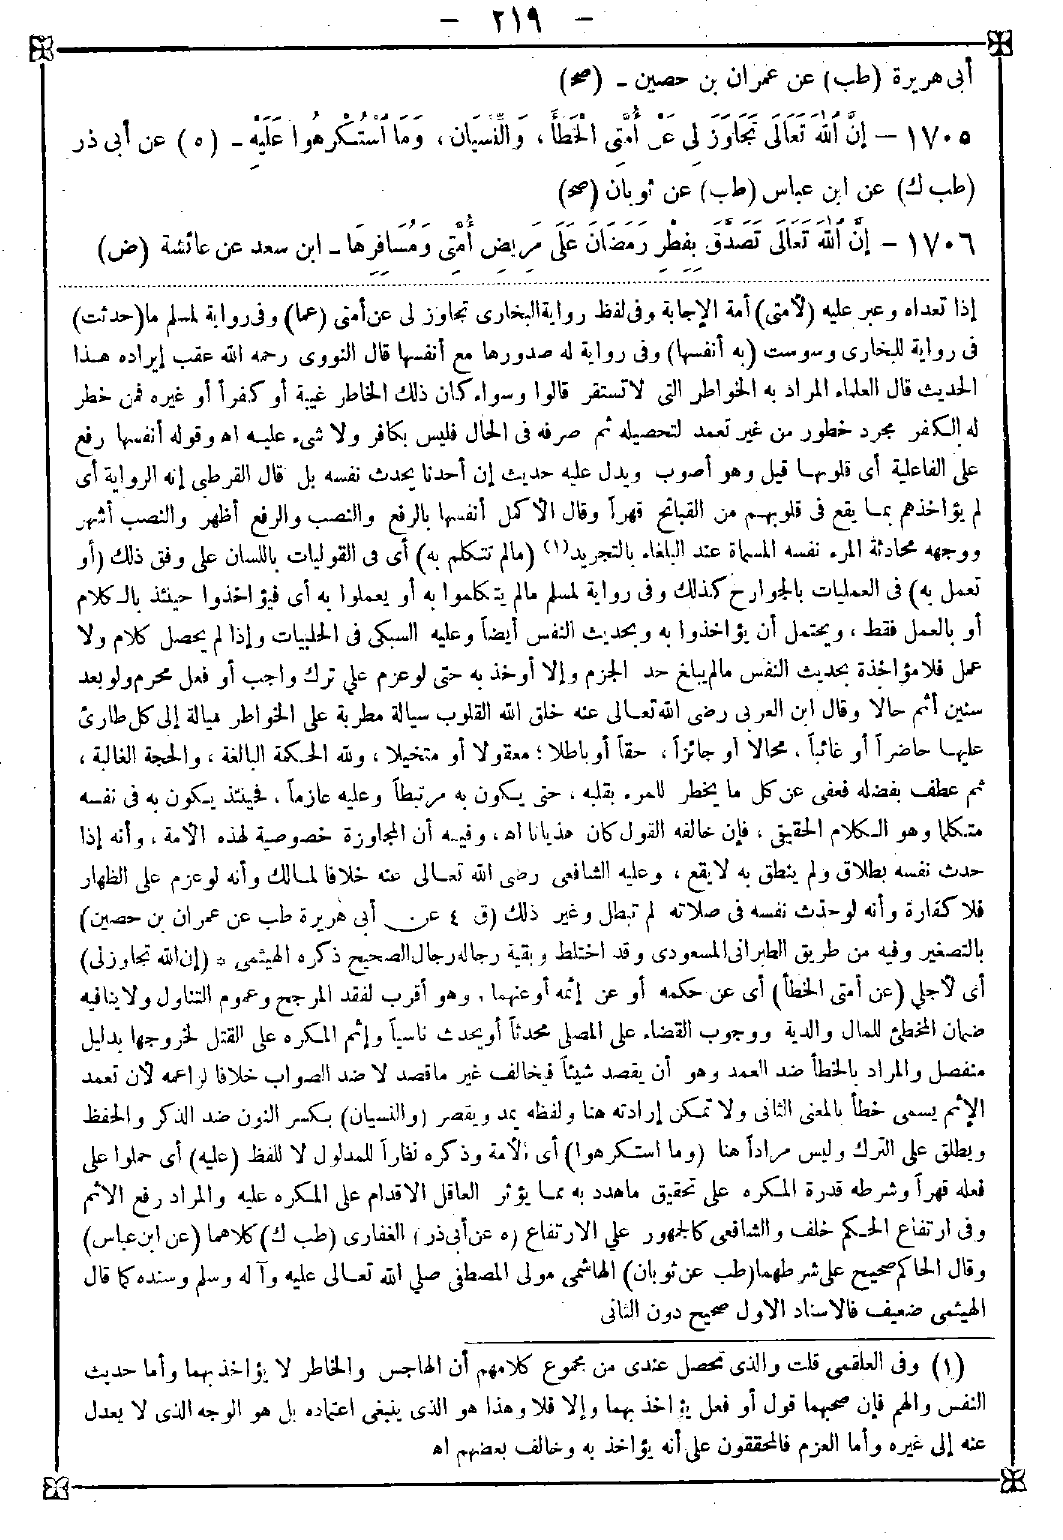 – ٢١٩ –
أبى هريرة (طب) عن عمران بن حصين - (صح)
١٧٠٥ – إِنَّ اللّٰهَ تَعَالَى تَجَاوَزَ لِى عَنْ أُمَّتِى الْخَطَأَ، وَالنِّسْيَانَ، وَمَا اسْتُكْرِهُوا عَلَيْهِ - (ه) عن أبى ذر
(طب ك) عن ابن عباس (طب) عن ثوبان (صح)
١٧٠٦ – إِنَّ اللّٰهَ تَعَالَى تَصَدَّقَ بِفِطْرِ رَمَضَانَ عَلَى مَرِيضِ أُمَّتِى وَمُسَافِرِهَا - ابن سعد عن عائشة (ض)
إذا تعداه وعبر عليه (لأمتى) أمة الإجابة وفى لفظ رواية البخارى تجاوز لى عن أمتى (عما) وفى رواية لمسلم ما (حدثت)
فى رواية للبخارى وسوست (به أنفسها) وفى رواية له صدورها مع أنفسها قال النووى رحمه الله عقب إيراده هذا
الحديث قال العلماء المراد به الخواطر التى لا تستقر قالوا وسواء كان ذلك الخاطر غيبة أو كفراً أو غيره فمن خطر
له الكفر مجرد خطور من غير تعمد لتحصيله ثم صرفه فى الحال فليس بكافر ولا شىء عليه اه وقوله أنفسها رفع
على الفاعلية أى قلوبها قيل وهو أصوب ويدل عليه حديث إن أحدنا يحدث نفسه بل قال القرطبى إنه الرواية أى
لم يؤاخذهم بما يقع فى قلوبهم من القبائح قهراً وقال الأكمل أنفسها بالرفع والنصب والرفع أظهر والنصب أشهر
ووجهه محادثة المرء نفسه المسماة عند البلغاء بالتجريد(١) (مالم تتكلم به) أى فى القوليات باللسان على وفق ذلك (أو
تعمل به) فى العمليات بالجوارح كذلك وفى رواية لمسلم مالم يتكلموا به أو يعملوا به أى فيؤاخذوا حينئذ بالكلام
أو بالعمل فقط، ويحتمل أن يؤاخذوا به وبحديث النفس أيضاً وعليه السبكى فى الحلبيات وإذا لم يحصل كلام ولا
عمل فلا مؤاخذة بحديث النفس مالم يبلغ حد الجزم وإلا أوخذ به حتى لو عزم على ترك واجب أو فعل محرم ولو بعد
سنين أثم حالا وقال ابن العربى رضى الله تعالى عنه خلق الله القلوب سيالة مطربة على الخواطر ميالة إلى كل طارئ
عليها حاضراً أو غائباً، محالا أو جائزاً، حقاً أو باطلا؛ معقولا أو متخيلا، ولله الحكمة البالغة، والحجة الغالبة،
ثم عطف بفضله فعفى عن كل ما يخطر للمرء بقلبه، حتى يكون به مرتبطاً وعليه عازماً، فحينئذ يكون به فى نفسه
متكلما وهو الكلام الحقيقى، فإن خالفه القول كان هذيانا اه، وفيه أن المجاوزة خصوصية لهذه الأمة، وأنه إذا
حدث نفسه بطلاق ولم ينطق به لايقع، وعليه الشافعى رضى الله تعالى عنه خلافا لمالك وأنه لو عزم على الظهار
فلا كفارة وأنه لو حدث نفسه فى صلاته لم تبطل وغير ذلك (ق ٤ عن أبى هريرة طب عن عمران بن حصين)
بالتصغير وفيه من طريق الطبرانى المسعودى وقد اختلط وبقية رجاله رجال الصحيح ذكره الهيثمى * (إن الله تجاوز لى)
أى لأجلى (عن أمتى الخطأ) أى عن حكمه أو عن إثمه أو عنهما، وهو أقرب لفقد المرجح وعموم التناول ولا ينافيه
ضمان المخطئ للمال والدية ووجوب القضاء على المصلى محدثاً أو يحدث ناسياً وإثم المكره على القتل لخروجها بدليل
منفصل والمراد بالخطأ ضد العمد وهو أن يقصد شيئاً فيخالف غير ماقصد لا ضد الصواب خلافا لزاعمه لأن تعمد
الإثم يسمى خطأ بالمعنى الثانى ولا تمكن إرادته هنا ولفظه يمد ويقصر (والنسيان) بكسر النون ضد الذكر والحفظ
ويطلق على الترك وليس مراداً هنا (وما استكرهوا) أى الأمة وذكره نظراً للمدلول لا للفظ (عليه) أى حملوا على
فعله قهراً وشرطه قدرة المكره على تحقيق ماهدد به مما يؤثر العاقل الاقدام على المكره عليه والمراد رفع الاثم
وفى ارتفاع الحكم خلف والشافعى كالجمهور على الارتفاع (ه عن أبى ذر) الغفارى (طب ك) كلاهما (عن ابن عباس)
وقال الحاكم صحيح على شرطهما (طب عن ثوبان) الهاشمى مولى المصطفى صلى الله تعالى عليه وآله وسلم وسنده كما قال
الهيثمى ضعيف فالاسناد الاول صحيح دون الثانى
(١) وفى العلقمى قلت والذى تحصل عندى من مجموع كلامهم أن الهاجس والخاطر لا يؤاخذ بهما وأما حديث
النفس والهم فإن صحبهما قول أو فعل يؤاخذ بهما وإلا فلا وهذا هو الذى ينبغى اعتماده بل هو الوجه الذى لا يعدل
عنه إلى غيره وأما العزم فالمحققون على أنه يؤاخذ به وخالف بعضهم اه